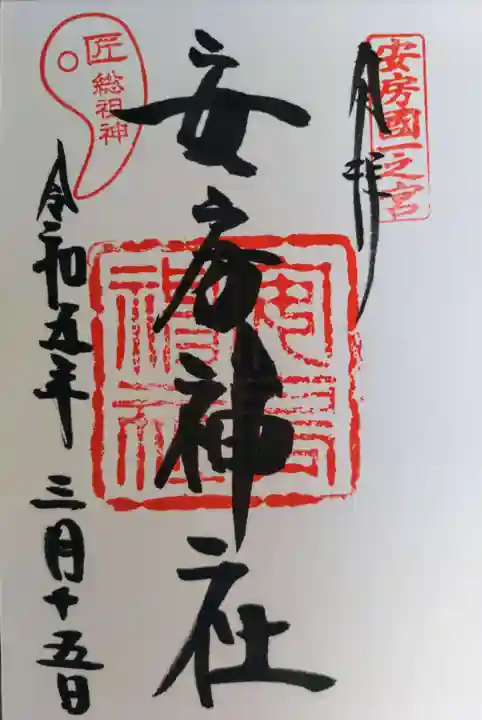 安房國一之宮
奉拝
安房神社
安房神社
匠
総祖神
令和五年
三月十五日